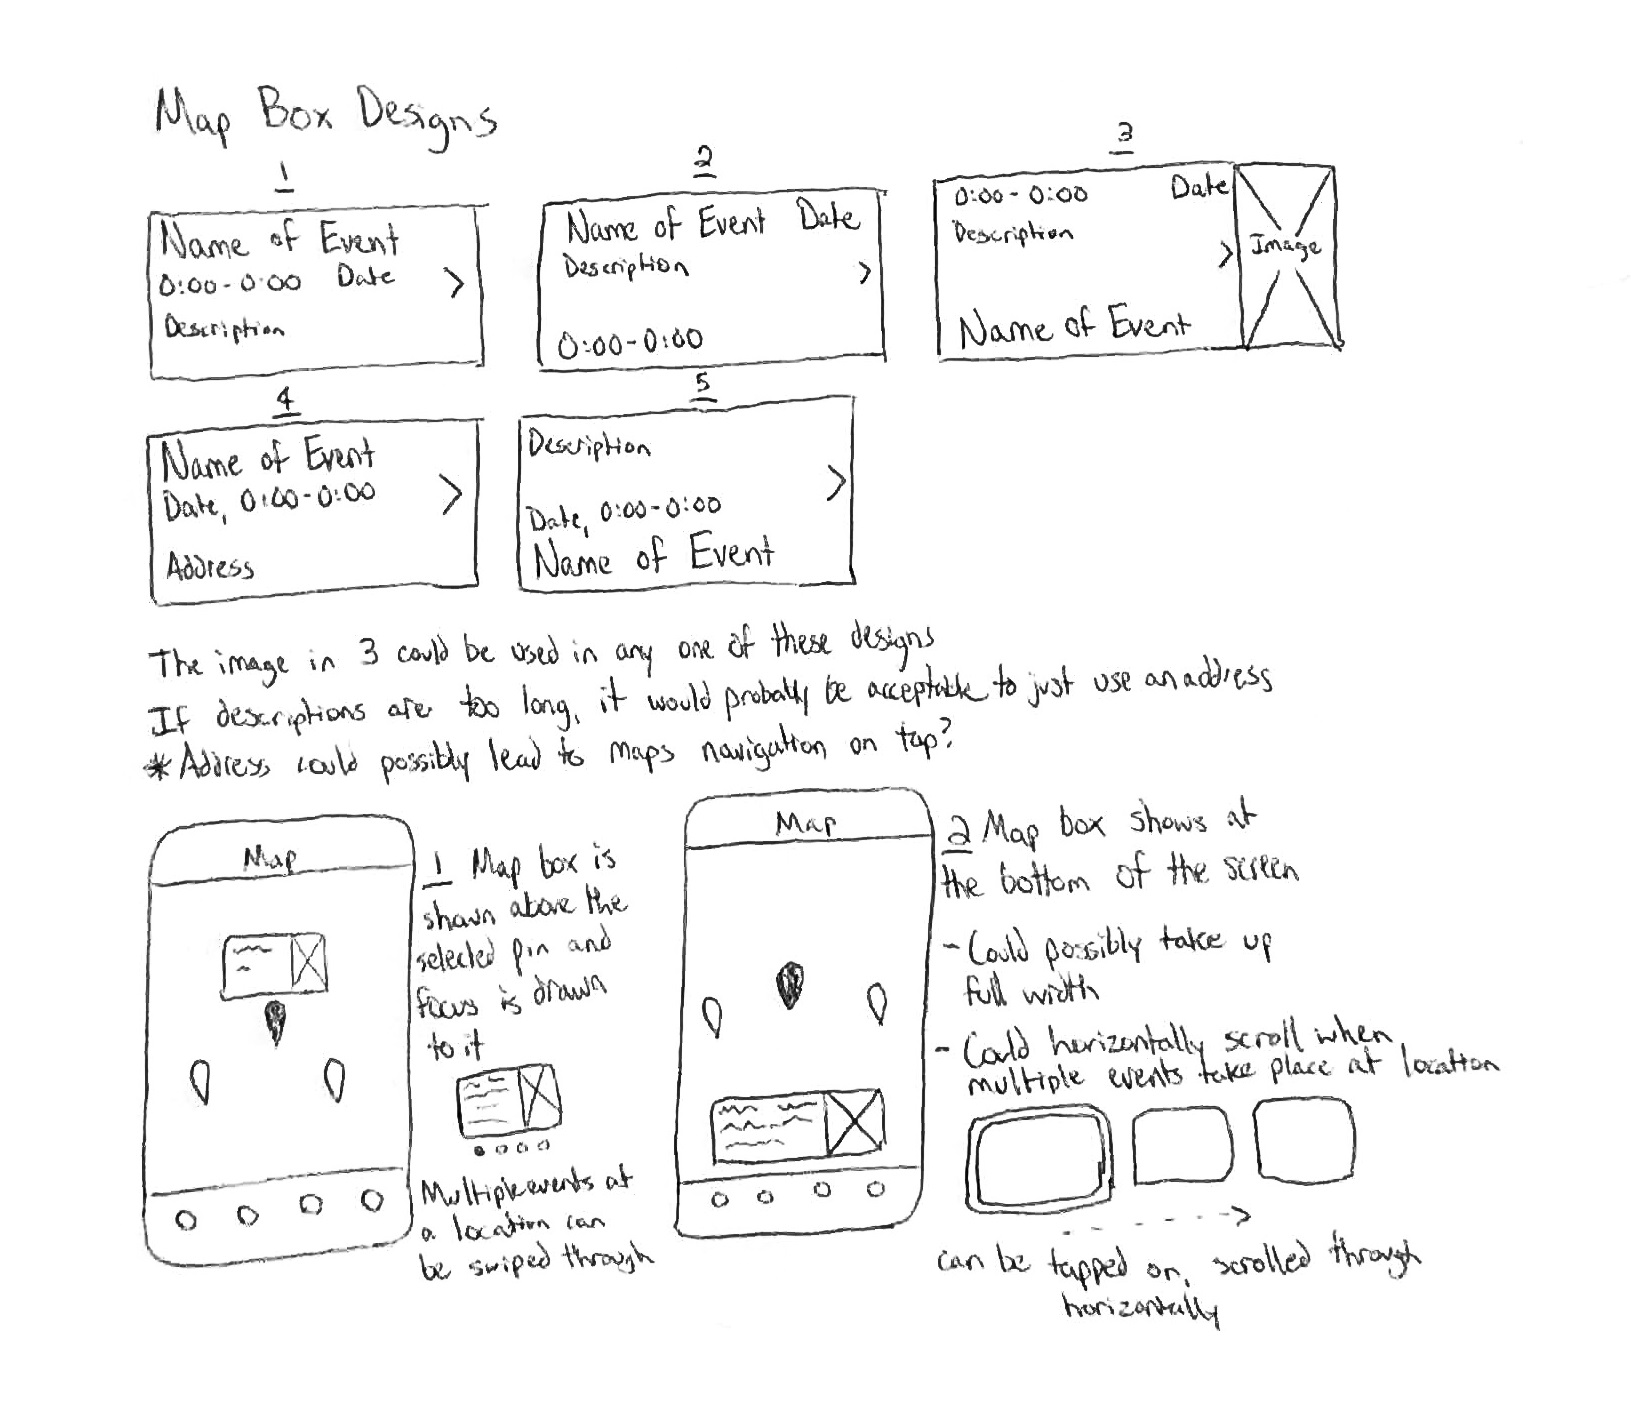 Map Box Designs
1
Name of Event
0:00-0:00 Date >
Description
2
Name of Event Date
Description >
0:00-0:00
3
0:00-0:00 Date
Description
> Image
Name of Event
4
Name of Event
Date, 0:00-0:00 >
Address
5
Description
>
Date, 0:00-0:00
Name of Event
The image in 3 could be used in any one of these designs
If descriptions are too long, it would probably be acceptable to just use an address
*Address could possibly lead to maps navigation on tap?
Map
1 Map box is
shown above the
selected pin and
focus is drawn
to it
Multiple events at
a location can
be swiped through
Map
2 Map box shows at
the bottom of the screen
- Could possibly take up
full width
- Could horizontally scroll when
multiple events take place at location
can be tapped on, scrolled through
horizontally